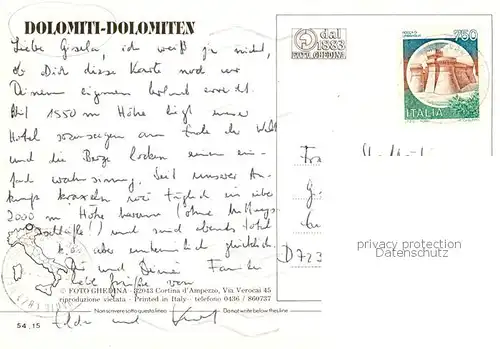 DOLOMITI-DOLOMITEN
dal
1883
FOTO GHEDINA
750
ITALIA
Liebe Gisela, ich weiß ja nicht,
ob Dich diese Karte noch vor
Deinem eigenen Urlaub erreicht.
Auf 1550 m Höhe liegt unser
Hotel sozusagen am Ende der Welt
und die Berge locken einen ein-
fach wahnsinnig. Seit unserer An-
kunft kraxeln wir täglich in über
2000 m Höhe herum (ohne Mittags-
und sind abends total
k.o. aber unheimlich glücklich.
Dir und Deiner Familie
liebe Grüße von
und
Fra
G
D 723
privacy protection
Datenschutz
© FOTO GHEDINA - 32043 Cortina d'Ampezzo, Via Verocai 45
riproduzione vietata - Printed in Italy - telefono 0436 / 860737
54,15
Non scrivere sotto questa linea
Do not write below the line